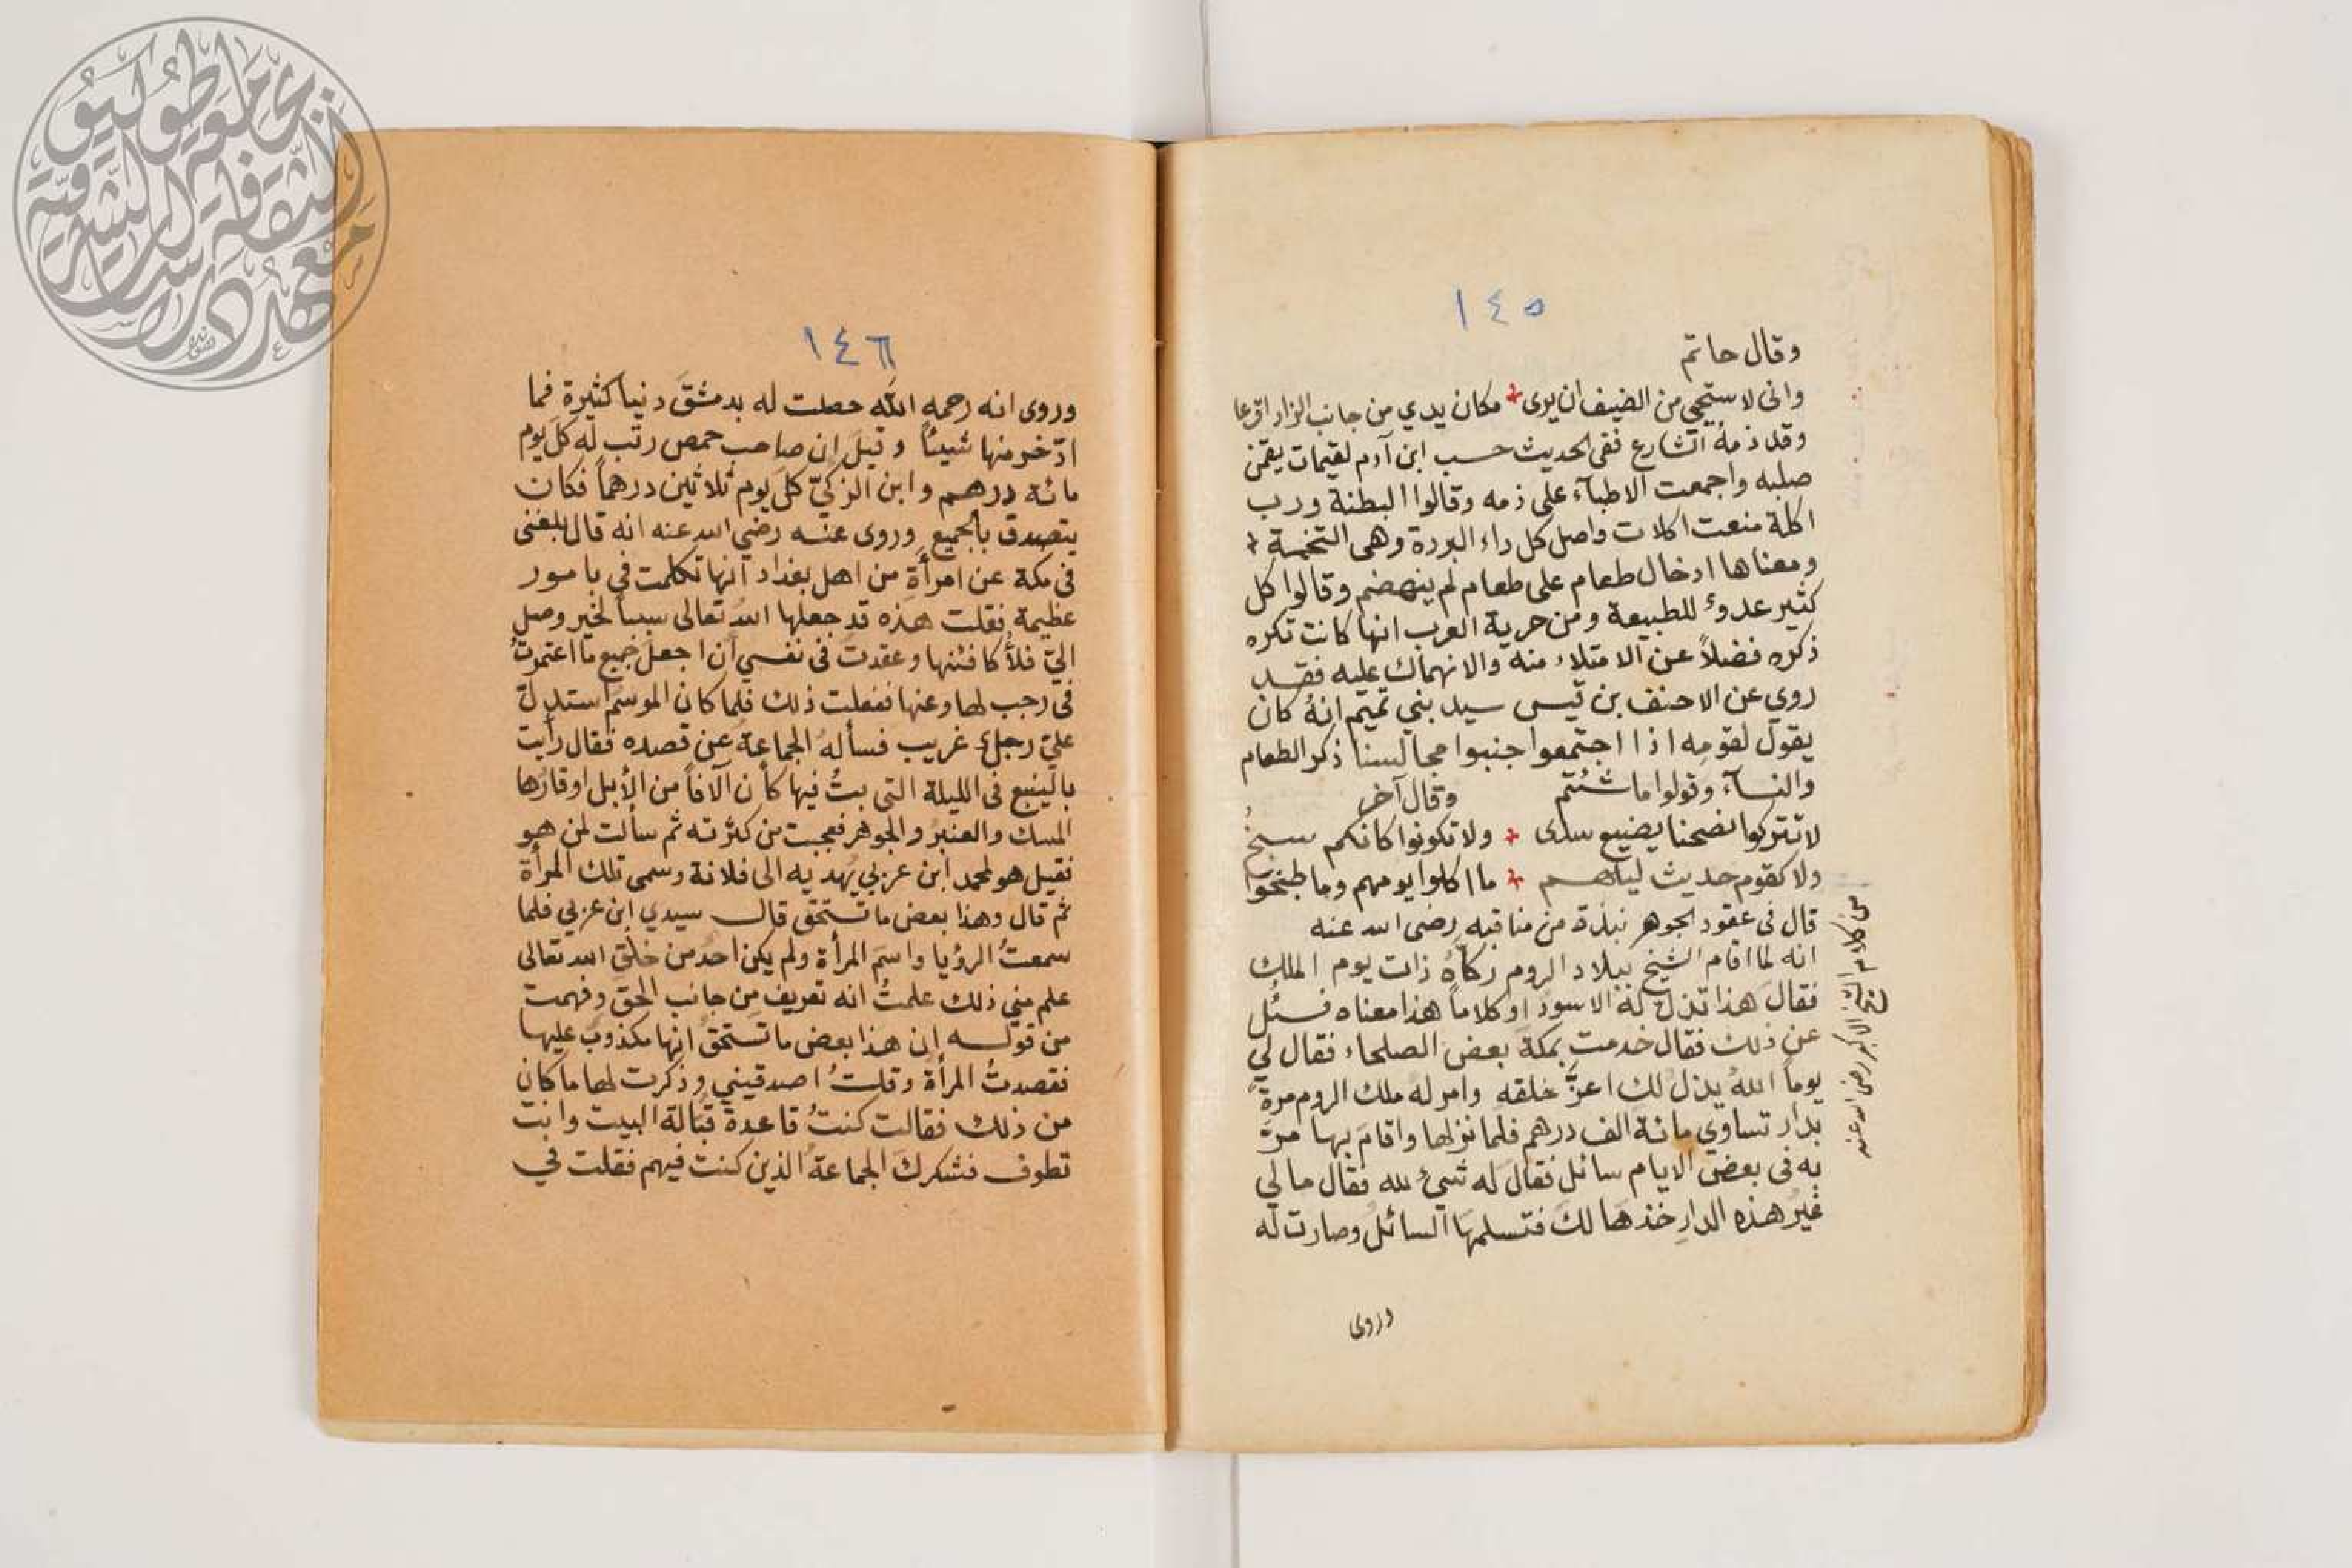 ١٤٥
وقال حاتم
وانى لاستحيي من الضيف ان يرى + مكان يدي من جانب الزاد اقرعا
وقد ذمهُ الشارع ففى الحديث حسب ابن آدم لقيمات يقمن
صلبه واجمعت الاطبآء على ذمه وقالوا البطنة ورب
اكلة منعت اكلات واصل كل داء البردة وهى التخمة +
ومعناها ادخال طعام على طعام لم ينهضم وقالوا كل
كثير عدوءٌ للطبيعة ومن حرية العرب انها كانت تكره
ذكره فضلاً عن الامتلاء منه والانهماك عليه فقد
روي عن الاحنف بن قيس سيد بني تميم انهُ كان
يقول لقومِه اذا اجتمعوا جنبوا مجالسنا ذكر الطعام
والنسآء وقولوا ما شئتم وقال آخر
لا تتركوا نصحنا يضيع سدى + ولا تكونوا كانكم سبخُ
ولا كقوم حديث ليلهم + ما اكلوا يومهم وما طبخوا
قال فى عقود الجوهر نبذة من مناقبه رضى الله عنه
انه لما اقام الشيخ ببلاد الروم زكّاهُ ذات يوم الملك
فقال هذا تذل له الاسود او كلاماً هذا معناه فسُئل
عن ذلك فقال خدمت بمكة بعض الصلحاء فقال لي
يوماً اللهُ يذلُ لك اعزَّ خلقه وامر له ملك الروم مرةً
بدار تساوي مائة الف درهم فلما نزلها واقام بها مرَّ
به فى بعض الايام سائل فقال له شيءٌ لله فقال ما لي
غيرُ هذه الدارِ خذها لك فتسلمها السائلُ وصارت له
وروى
من كلام الشيخ الاكبر رضى الله عنه
١٤٦
وروى انه رحمه اللّٰه حصلت له بدمشق دنيا كثيرة فما
ادّخر منها شيئاً وقيل ان صاحب حمص رتب له كل يوم
مائة درهم وابن الزكيّ كل يوم ثلاثين درهماً فكان
يتصدق بالجميع وروى عنه رضي الله عنه انه قال بلغنى
فى مكة عن امرأةٍ من اهل بغداد انها تكلمت في بامور
عظيمة فقلت هذه قد جعلها الله تعالى سبباً لخير وصل
اليّ فلأكافئنها وعقدت فى نفسي ان اجعل جميع ما اعتمرتُ
فى رجب لها وعنها ففعلت ذلك فلما كان الموسم استدل
عليّ رجلٌ غريب فسألهُ الجماعة عن قصده فقال رأيت
بالينبع فى الليلة التى بتُ فيها كأن آلافاً من الأبل اوقارُها
المسك والعنبرُ والجوهر فعجبت من كثرته ثم سألت لمن هو
فقيل هو لمحمد ابن عربي يُهديه الى فلانة وسمى تلك المرأة
ثم قال وهذا بعض ما تستحق قال سيدي ابن عربي فلما
سمعتُ الرؤيا واسمَ المرأة ولم يكن احدٌ من خلق الله تعالى
علم مني ذلك علمتُ انه تعريف من جانب الحق وفهمت
من قوله ان هذا بعض ما تستحق انها مكذوب عليها
فقصدتُ المرأة وقلتُ اصدقيني وذكرت لها ما كان
من ذلك فقالت كنتُ قاعدة قُبالة البيت وانت
تطوف فشكرك الجماعةُ الذين كنت فيهم فقلت في